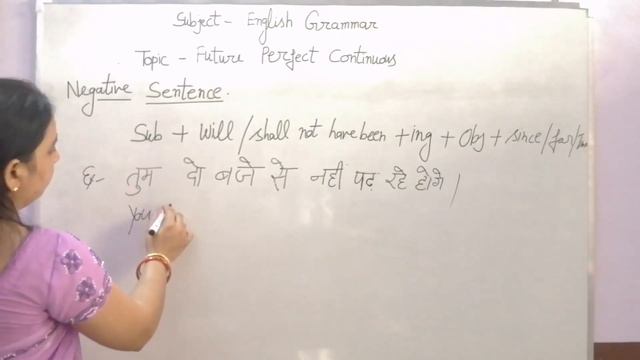 Subject - English Grammar
Topic - Future Perfect Continuous
Negative Sentence.
Sub + Will/shall not have been + ing + Obj + since/for/
Ex- तुम दो बजे से नही पढ़ रहे होगे।
You